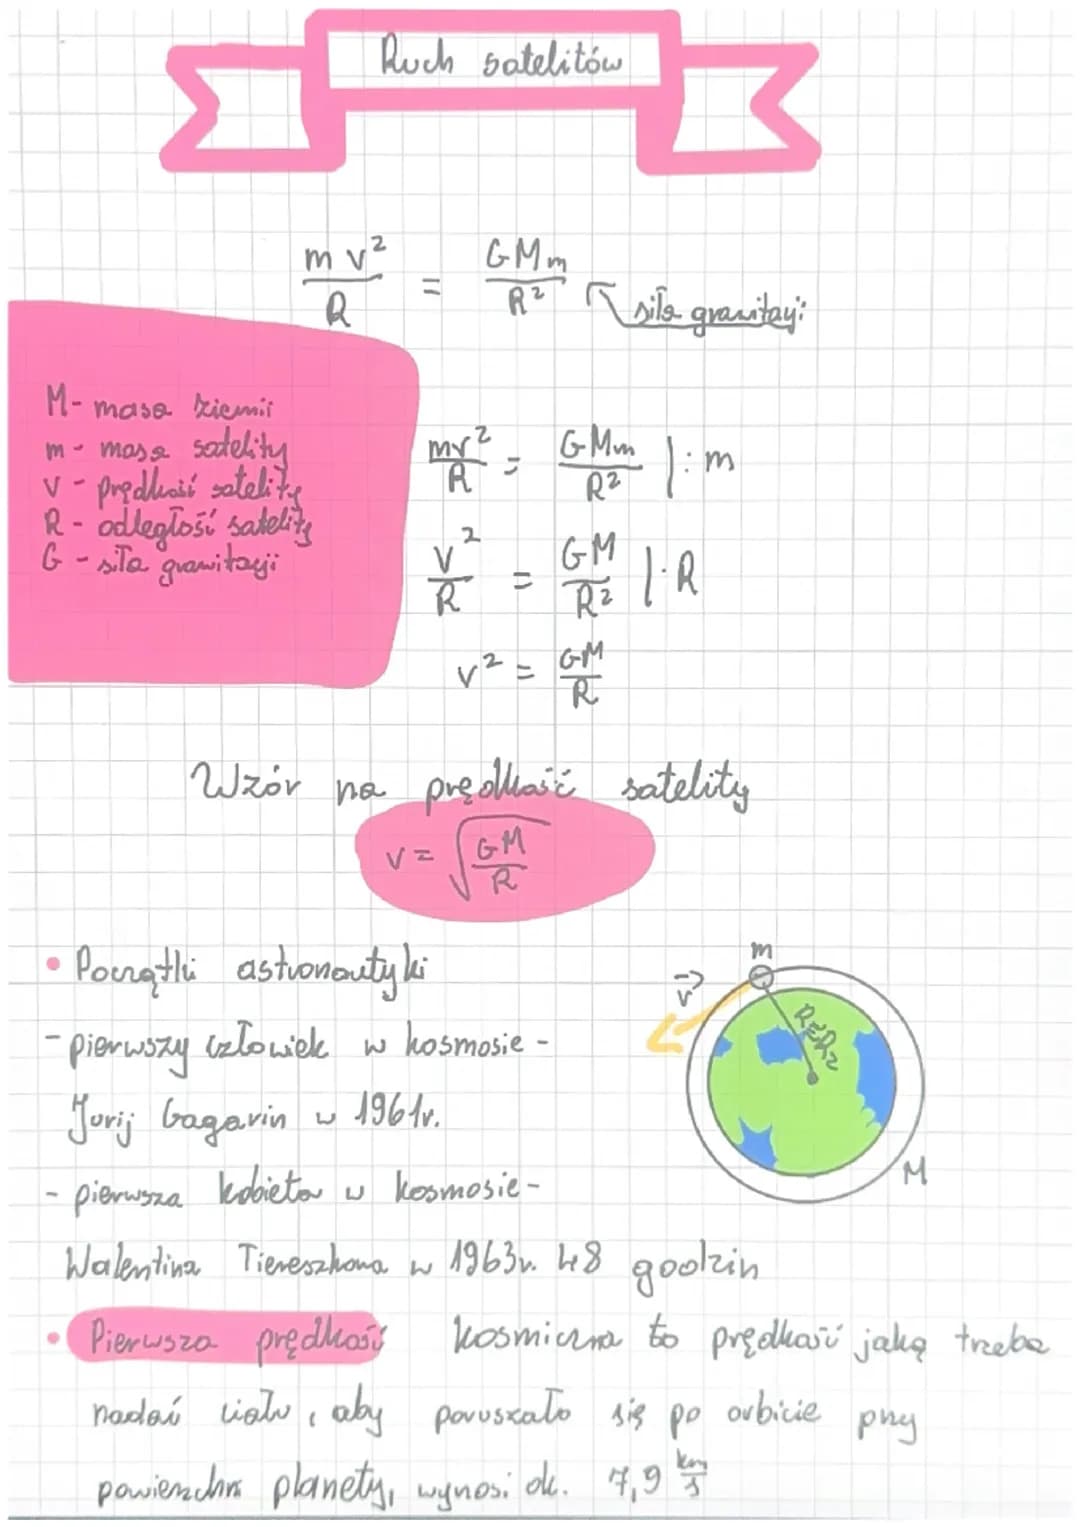 Ruch satelitów
m v² / R = G M m / R²
siła grawitacji
M - masa ziemii
m - masa satelity
v - prędkość satelity
R - odległość satelity
G - siła grawitacji
mv² / R = G M m / R² | : m
v² / R = G M / R² | · R
v² = GM / R
Wzór na prędkość satelity
v = √(GM / R)
• Początki astronautyki
- pierwszy człowiek w kosmosie -
Jurij Gagarin w 1961r.
- pierwsza kobieta w kosmosie -
Walentina Tiereszkowa w 1963r. 48 godzin
m
v
R≈Rz
M
• Pierwsza prędkość kosmiczna to prędkość jaką trzeba
nadać ciału, aby poruszało się po orbicie przy
powierzchni planety, wynosi ok. 7,9 km/s